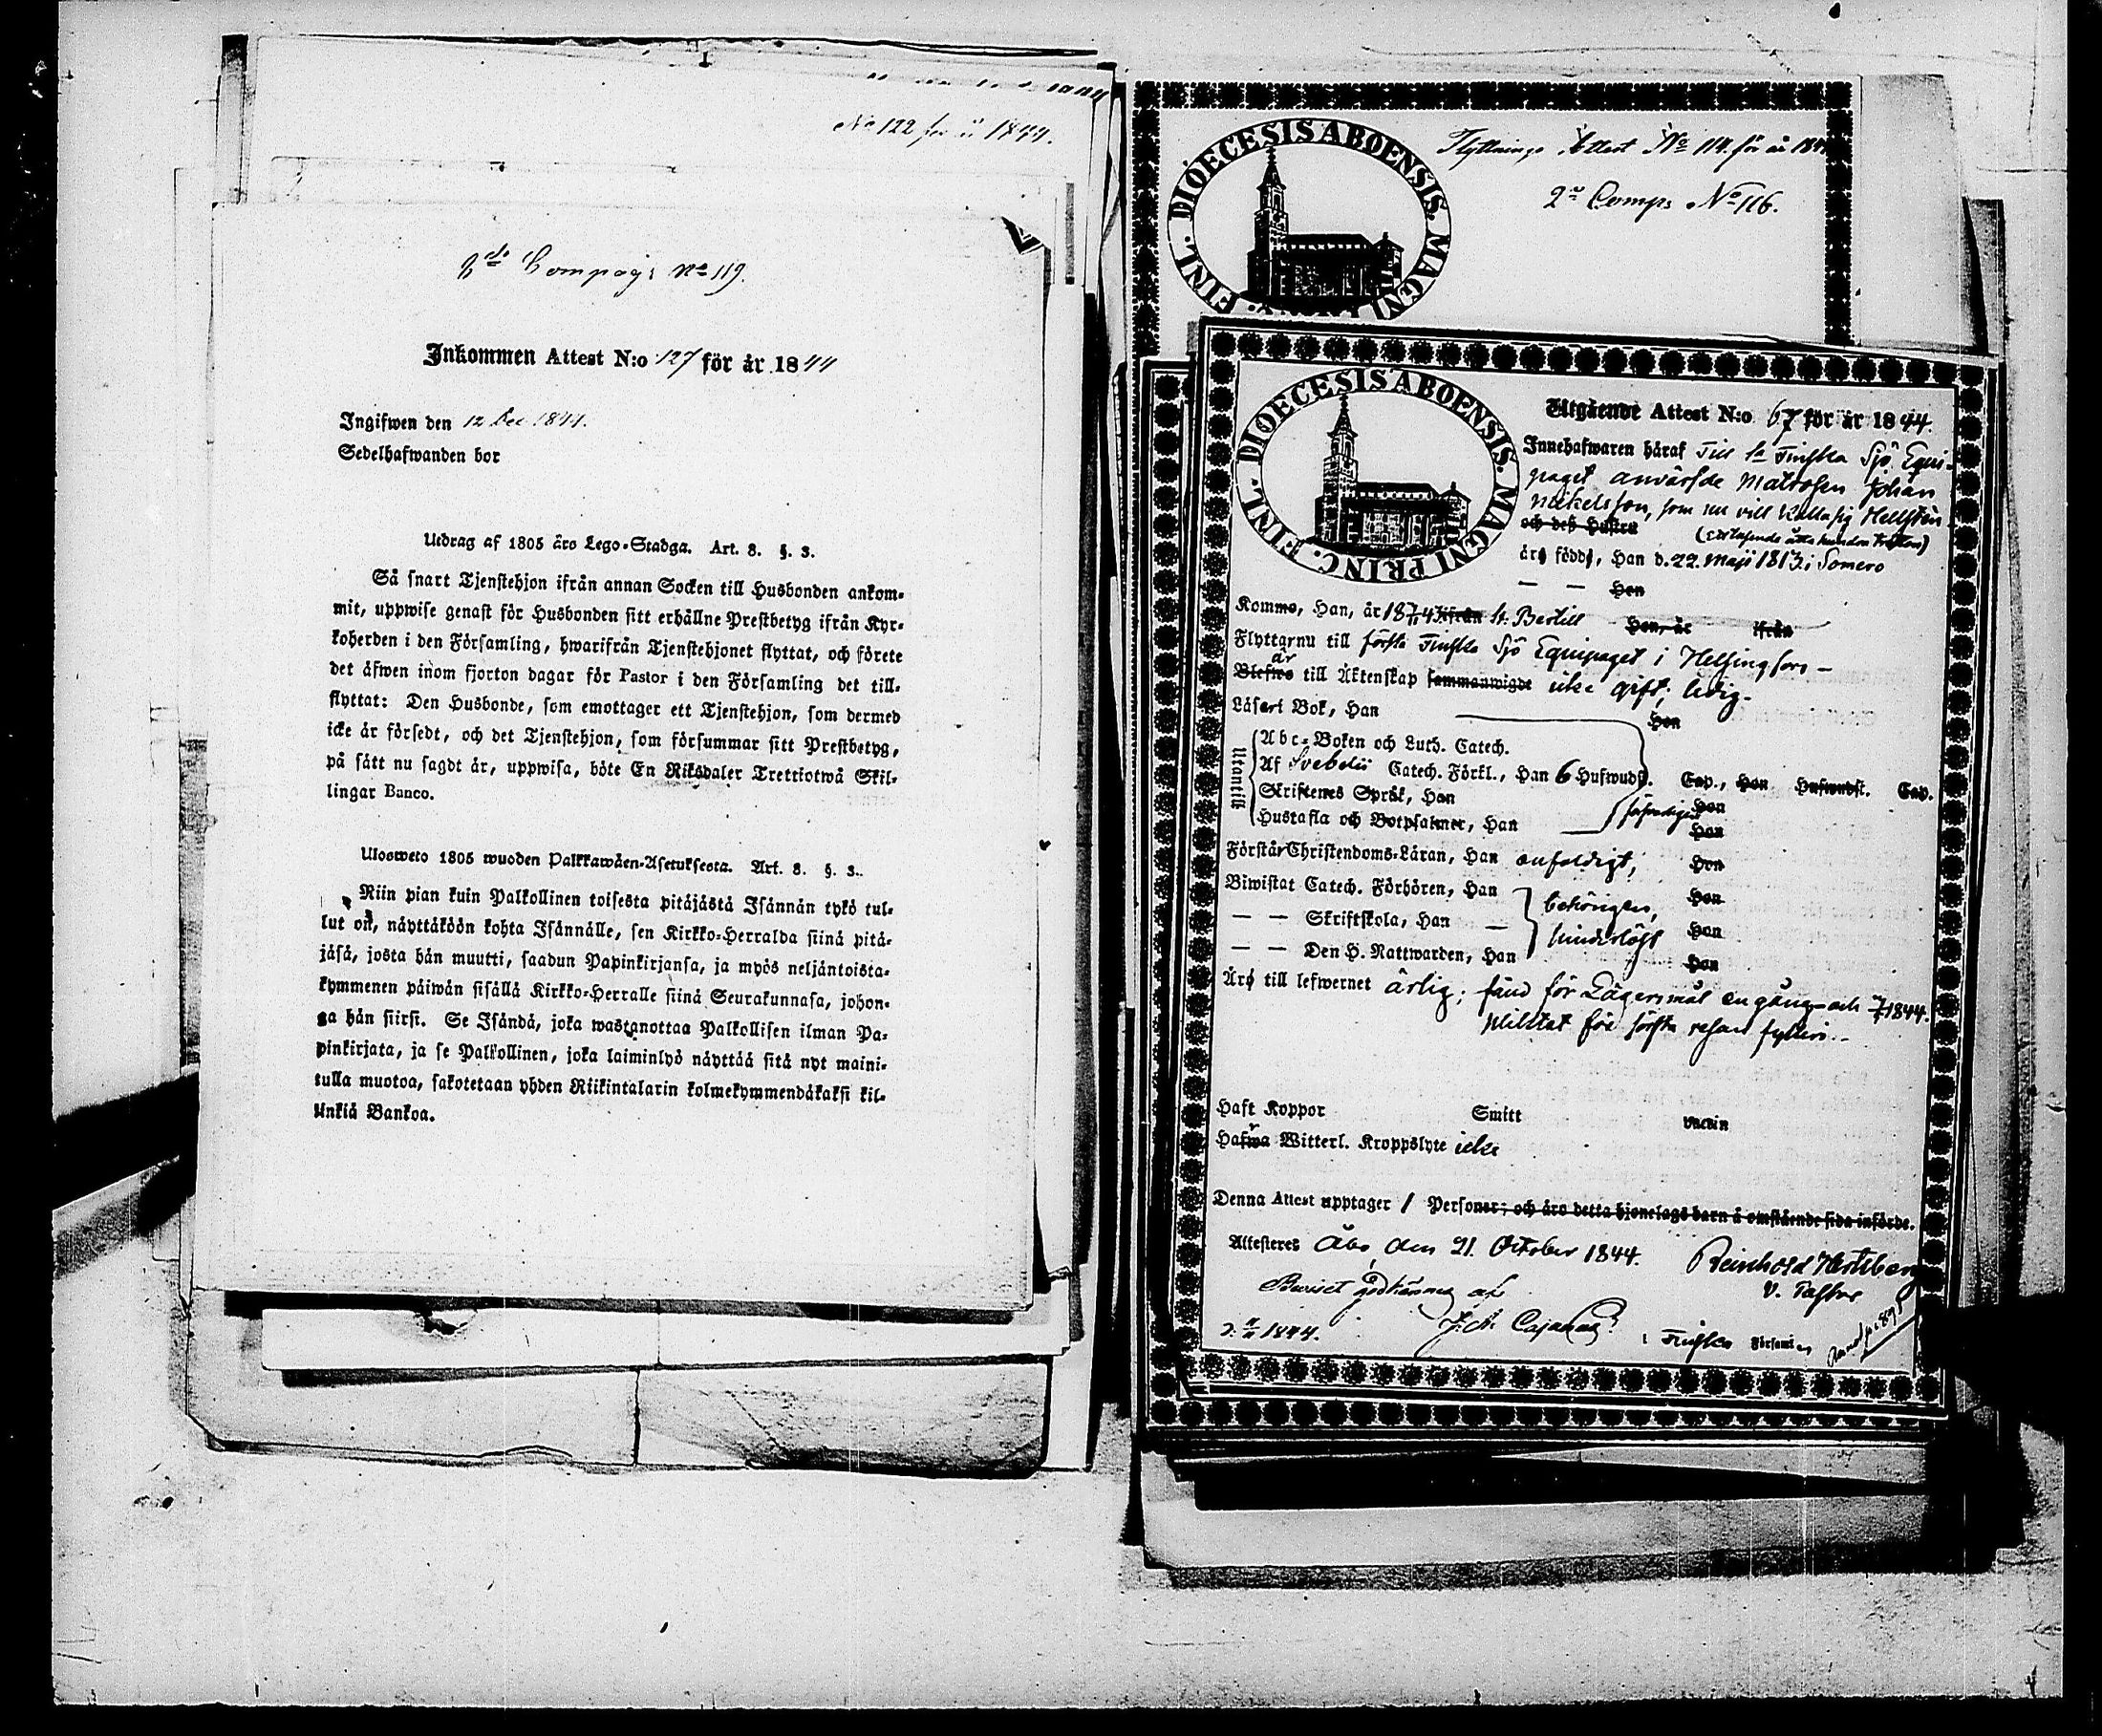 No 122 för å 1844.
2da Compagi No 119.
Inkommen Attest N:o 127 för år 1844
Ingifwen den 12 Dec 1844.
Sedelhafwanden bor
Utdrag af 1805 års Lego-Stadga. Art. 8. §. 3.
Så snart Tjenstehjon ifrån annan Socken till Husbonden ankom-
mit, uppwise genast för Husbonden sitt erhållne Prestbetyg ifrån Kyr-
koherden i den Församling, hwarifrån Tjenstehjonet flyttat, och förete
det äfwen inom fjorton dagar för Pastor i den Församling det till-
flyttat: Den Husbonde, som emottager ett Tjenstehjon, som dermed
icke är försedt, och det Tjenstehjon, som försummar sitt Prestbetyg,
på sätt nu sagdt är, uppwisa, böte En Riksdaler Trettiotwå Skil-
lingar Banco.
Ulosweto 1805 wuoden Palkkawäen-Asetuksesta. Art. 8. §. 3.
Niin pian kuin Palkollinen toisesta pitäjästä Isännän tykö tul-
lut on, näyttäköön kohta Isännälle, sen Kirkko-Herralda siinä pitä-
jäsä, josta hän muutti, saadun Papinkirjansa, ja myös neljäntoista-
kymmenen päiwän sisällä Kirkko-Herralle siinä Seurakunnasa, johon-
ga hän siirsi. Se Isändä, joka wastanottaa Palkollisen ilman Pa-
pinkirjata, ja se Palkollinen, joka laiminlyö näyttää sitä nyt maini-
tulla muotoa, sakotetaan yhden Riikintalarin kolmekymmendäkaksi kil-
linkiä Bankoa.
DIOECESIS ABOENSIS. MAGNI PRINC. FINL.
Flyttnings Attest No 114. för år 184
2a Comps No 116.
DIOECESIS ABOENSIS. MAGNI PRINC. FINL.
Utgående Attest N:o 67 för år 1844.
Innehafwaren häraf Till 1a Finska Sjö Equi-
paget anvärfde Matrosen Johan
Mickelsson, som nu vill kalla sig Hellstén
och deß Hustru (Ett tusende åtta hundra tretton)
äro födde, Han d. 22. Maji 1813. i Somero
— — Hon
Kommo, Han, år 18 43 ifrån St. Bertill Hon, år ifrån
Flyttar nu till första Finska Sjö Equipaget i Helsingfors —
är
Blefwo till Äktenskap sammanwigde icke gift; ledig.
Läser i Bok, Han Hon
Utantill
Abc-Boken och Luth. Catech.
Af Svebelii Catech. Förkl., Han 6 Hufwudst. Cap., Hon Hufwudst. Cap.
Skriftenes Språk, Han Hon
Hustafla och Botpsalmer, Han Hon
Förstår Christendoms-Läran, Han enfaldigt, Hon
Biwistat Catech. Förhören, Han behörigen, Hon
— — Skriftskola, Han — Hon
— — Den H. Nattwarden, Han hinderlöst Hon
Äro till lefwernet ärlig; för Lägersmål en gång och 1844.
pliktat för första resan fylleri. -
Haft Koppor Smitt Vaccin
Hafwa Witterl. Kroppslyte icke
Denna Attest upptager 1 Personer; och äro detta hjonelags barn å omstående sida införde.
Attesteres Åbo, den 21. October 1844. Reinhold Hertzberg
V. Pastor
Beviset godkännes af
J. A. Cajanus
1844. i Finska Församl